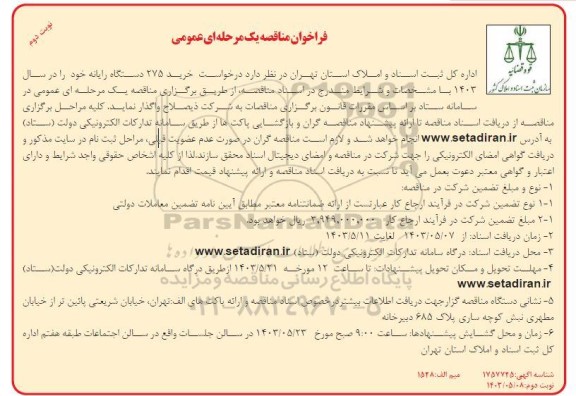 نوبت دوم
فراخوان مناقصه یک مرحله ای عمومی
قوه قضائیه
سازمان ثبت اسناد و املاک کشور
اداره کل ثبت اسناد و املاک استان تهران در نظر دارد درخواست خرید ۲۷۵ دستگاه رایانه خود را در سال
۱۴۰۳ با مشخصات و شرایط مندرج در اسناد مناقصه، از طریق برگزاری مناقصه یک مرحله ای عمومی در
سامانه ستاد بر اساس مقررات قانون برگزاری مناقصات به شرکت ذیصلاح واگذار نمایید. کلیه مراحل برگزاری
مناقصه از دریافت اسناد مناقصه تا ارائه پیشنهاد مناقصه گران و بازگشایی پاکت ها از طریق سامانه تدارکات الکترونیکی دولت (ستاد)
به آدرس www.setadiran.ir انجام خواهد شد و لازم است مناقصه گران در صورت عدم عضویت قبلی، مراحل ثبت نام در سایت مذکور و
دریافت گواهی امضای الکترونیکی را جهت شرکت در مناقصه و امضای دیجیتال اسناد محقق سازند.لذا از کلیه اشخاص حقوقی واجد شرایط و دارای
اعتبار و گواهی معتبر دعوت بعمل می آید تا نسبت به دریافت اسناد مناقصه و ارائه پیشنهاد قیمت اقدام نمایند.
۱- نوع و مبلغ تضمین شرکت در مناقصه:
۱-۱ نوع تضمین شرکت در فرآیند ارجاع کار عبارتست از ارائه ضمانتنامه معتبر مطابق آیین نامه تضمین معاملات دولتی
۱-۲ مبلغ تضمین شرکت در فرآیند ارجاع کار ۳،۹۴۹،۰۰۰،۰۰۰ ریال خواهد بود.
۲- زمان دریافت اسناد: از ۱۴۰۳/۰۵/۰۷ لغایت ۱۴۰۳/۵/۱۱
۳- محل دریافت اسناد: درگاه سامانه تدارکات الکترونیکی دولت (ستاد) www.setadiran.ir
۴- مهلت تحویل و مکان تحویل پیشنهادات: تا ساعت ۱۲ مورخه ۱۴۰۳/۵/۲۱ ازطریق درگاه سامانه تدارکات الکترونیکی دولت(ستاد)
www.setadiran.ir
۵- نشانی دستگاه مناقصه گزارجهت دریافت اطلاعات بیشتر درخصوص اسناد مناقصه و ارائه پاکت های الف:تهران، خیابان شریعتی پائین تر از خیابان
مطهری نبش کوچه ساری پلاک ۶۸۵ دبیرخانه
۶- زمان و محل گشایش پیشنهادها: ساعت ۹:۰۰ صبح مورخ ۱۴۰۳/۰۵/۲۳ در سالن جلسات واقع در سالن اجتماعات طبقه هفتم اداره
کل ثبت اسناد و املاک استان تهران
شناسه آگهی: ۱۷۵۷۷۴۵ میم الف: ۱۵۲۸
نوبت دوم: ۱۴۰۳/۰۵/۰۸
ParsNamadData
پایگاه اطلاع رسانی مناقصه و مزایده
۰۲۱-۸۸۳۴۹۶۷۰-۵